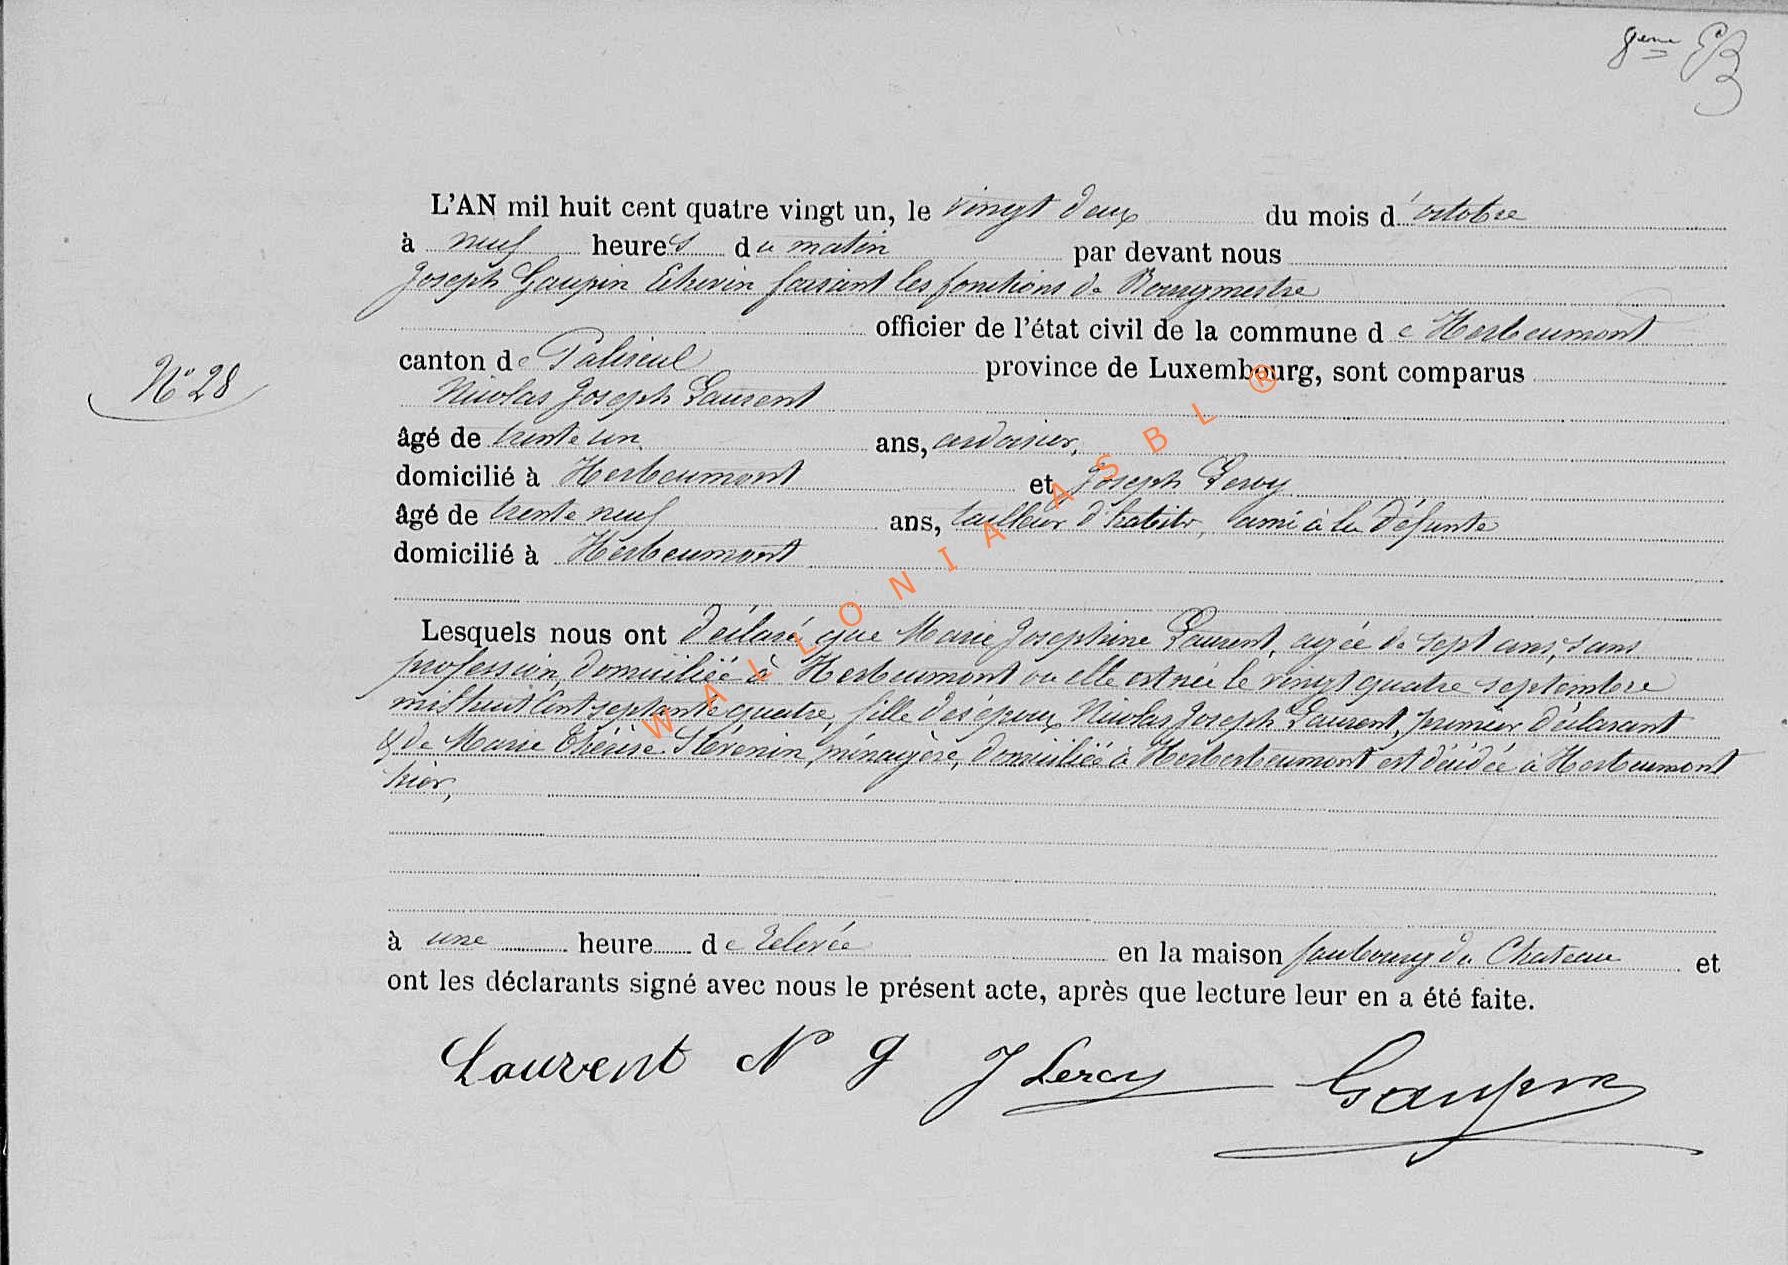 8eme
L'AN mil huit cent quatre vingt un, le vingt deux du mois d'octobre
à neuf heures du matin par devant nous
Joseph Gaupin Echevin faisant les fonctions de Bourgmestre
officier de l'état civil de la commune de Herbeumont
N° 28
canton de Paliseul province de Luxembourg, sont comparus
Nicolas Joseph Laurent
âgé de trente un ans, ardoisier,
domicilié à Herbeumont et Joseph Leroy
âgé de trente neuf ans, tailleur d'habits, ami à la défunte
domicilié à Herbeumont
Lesquels nous ont déclaré que Marie Josephine Laurent, agée de sept ans, sans
profession, domiciliée à Herbeumont ou elle est née le vingt quatre septembre
mil huit cent septante quatre, fille des époux Nicolas Joseph Laurent, premier déclarant
& de Marie Thérèse Stévenin, ménagère, domiciliée à Herberbeumont est décédée à Herbeumont
hier,
à une heure de relevée en la maison faubourg du Chateau et
ont les déclarants signé avec nous le présent acte, après que lecture leur en a été faite.
Laurent N J J Leroy Gaupin
WALLONIA ASBL ®